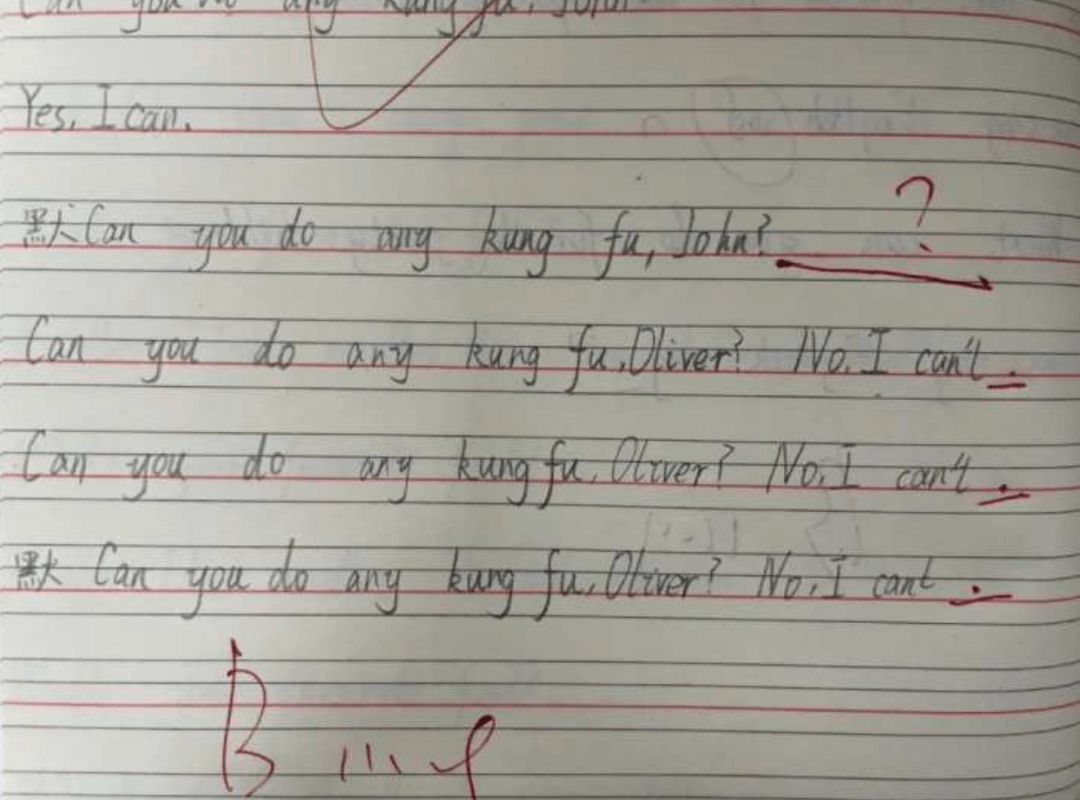 Can you do any kung fu, John
Yes, I can.
?
默 Can you do any kung fu, John?
Can you do any kung fu, Oliver? No, I can't.
Can you do any kung fu, Oliver? No, I can't.
默 Can you do any kung fu, Oliver? No, I cant.
B